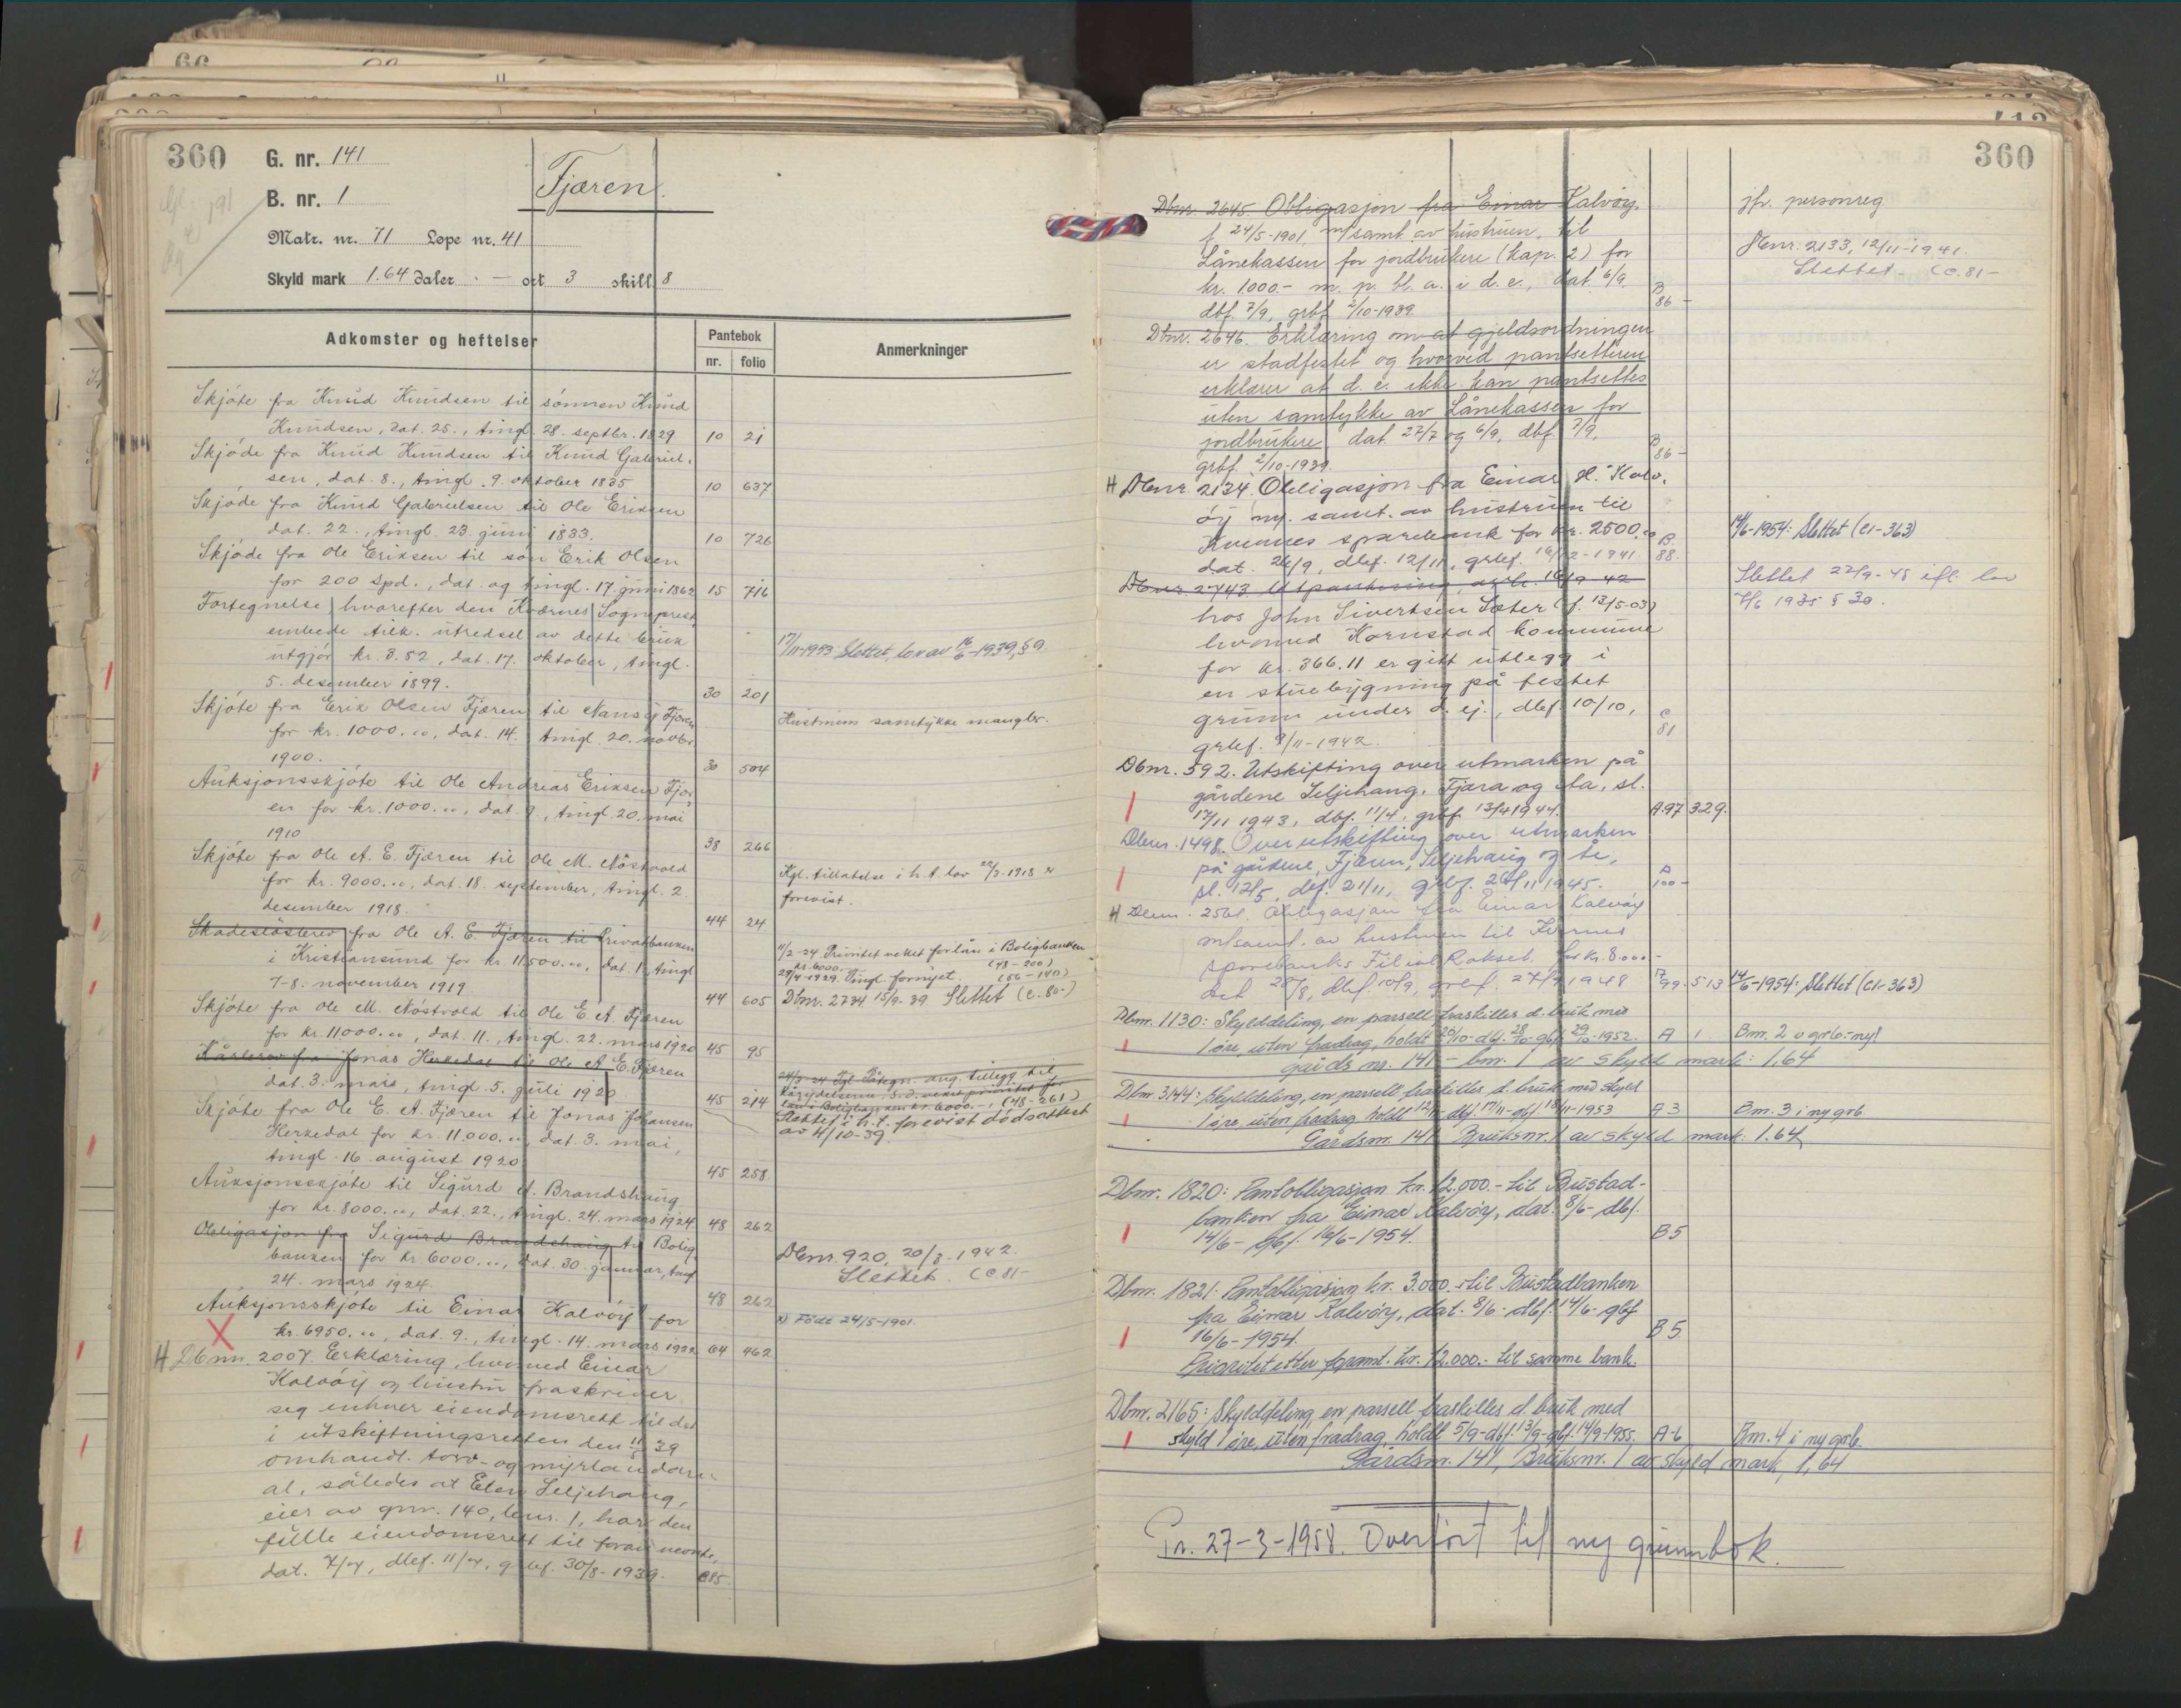 360
G. nr. 141
B. nr. 1
Fjæren.
Matr. nr. 71 Løpe nr. 41
Skyld mark 1.64 daler - ort 3 skill. 8
Adkomster og heftelser
Pantebok
nr. folio
Anmerkninger
Skjøte fra Knud Knudsen til sønnen Knud
Knudsen, dat. 25., tingl. 28. septbr. 1829 10 21
Skjøde fra Knud Knudsen til Knud Gabriel-
sen, dat. 8., tingl. 9. oktober 1835 10 637
Skjøde fra Knud Gabrielsen til Ole Eriksen
dat. 22., tingl. 23. juni 1833. 10 726
Skjøde fra Ole Eriksen til søn Erik Olsen
for 200 spd., dat. og tingl. 17. juni 1862 15 716
Fortegnelse, hvorefter den Kværnes Sogneprest
embede tilk. utredsel av dette bruk
utgjør kr. 3.52, dat. 17. oktober, tingl.
5. desember 1899. 30 201
17/11-1953 Slettet, lov av 16/6-1939, § 9
Skjøte fra Erik Olsen Fjæren til Nansy Fjæren
for kr. 1000.00, dat. 14. tingl. 20. novbr.
1900. 30 504
Hustruens samtykke mangler.
Auksjonsskjøte til Ole Andreas Eriksen Fjær-
en for kr. 1000.00, dat. 9., tingl. 20. mai
1910 38 266
Skjøte fra Ole A. E. Fjæren til Ole M. Nøstvold
for kr. 9000.00, dat. 18. september, tingl. 2.
desember 1918. 44 24
Kgl. tillatelse i h. t. lov
forevist.
Skadesløsbrev fra Ole A. E. Fjæren til Privatbanken
i Kristiansund for kr. 11500.00, dat. 1., tingl
7-8. november 1919 44 605
11/2-24 Prioritet veket for lån i Boligbanken
kr. 6000.- (48-200)
29/4-1929. Tingl. fornyet. (56-140)
Dbnr. 2734 15/9-39. Slettet (C.80-)
Skjøte fra Ole M. Nøstvold til Ole E. A. Fjæren
for kr. 11000.00, dat. 11., tingl. 22. mars 1920 45 95
Kårbrev fra Jonas Herkedal til Ole A E. Fjæren
dat. 3. mars, tingl. 5. juli 1920 45 214
24/3-24 Tgl. Påtegn. ang. tillegg til
lån i Boligbanken kr. 6000.00, (48-261)
Slettet i h. t. forevist dødsattest
av 4/10-39.
Skjøte fra Ole E. A. Fjæren til Jonas Johansen
Herkedal for kr. 11.000.00, dat. 3. mai,
tingl. 16. august 1920 45 258
Auksjonsskjøte til Sigurd A. Brandshaug
for kr. 8000.00, dat. 22., tingl. 24. mars 1924 48 262
Obligasjon fra Sigurd Brandshaug til Bolig
banken for kr 6000.00, dat. 30. januar, tingl
24. mars 1924. 48 262
Dbnr. 920, 20/3-1942.
Slettet. (C.81-
Auksjonsskjøte til Einar Kalvøy x) for
kr. 6950.00, dat. 9., tingl. 14. mars 1932 64 462
x) Født 24/5-1901.
H Dbnr. 2007. Erklæring, hvorved Einar
Kalvøy og hustru fraskriver
seg enhver eiendomsrett til det
i utskiftningsretten den 11/5 39
omhandl. torv- og myrland
al, således at Elen Seljehaug,
eier av gnr. 140, bnr. 1, har den
fulle eiendomsrett til foran nevnte,
dat. 7/7, dbf. 11/7, grbf. 30/8-1939. C85
360
Dbnr. 2645. Obligasjon fra Einar Kalvøy,
f. 24/5-1901, m/samt. av hustruen, til
Lånekassen for jordbrukere (kap. 2) for
kr. 1000.- m. p. bl. a. i d. e., dat. 6/9,
dbf. 7/9, grbf. 2/10-1939. B 86 -
jfr. personreg
Dbnr. 2133, 12/11-1941.
Slettet - (C.81-
Dbnr. 2646. Erklæring om at gjeldsordningen
er stadfestet og hvorved pantsetteren
erklærer at d. e. ikke kan pantsettes
uten samtykke av Lånekassen for
jordbrukere dat. 27/7 og 6/9, dbf. 7/9,
grbf. 2/10-1939. B 86 -
H Dbnr. 2134. Obligasjon fra Einar H. Kalv-
øy m. samt. av hustruen til
Kvernes sparebank for kr. 2500.00
dat. 26/9, dbf. 12/11, grbf. 16/12-1941. B 88.
14/6-1954: Slettet (C1-363)
Dbnr 2743 Utpantning, avh. 16/9-42
hos John Sivertsen Sæter (f. 13/5-03)
hvorved Kornstad kommune
for kr. 366.11 er gitt utlegg i
en stuebygning på festet
grunn under d. ej., dbf. 10/10,
grbf. 9/11-1942. C 81
Slettet 22/9-48 ifl. lov
7/6 1935 § 30.
Dbnr. 592. Utskifting over utmarken på
gårdene Seljehaug, Fjæra og Aa, sl.
17/11 1943, dbf. 11/4, grbf. 13/4 1944. A.97 329.
Dbnr. 1498. Overutskifting over utmarken
på gårdene, Fjæren, Seljehaug og Åe,
sl. 12/5, dbf. 21/11, grbf. 26/11 1945. A 100 -
H Dbnr. 2561. Obligasjon fra Einar Kalvøy
m/samt. av hustruen til Kvernes
sparebanks Filial Rokset for kr. 8.000.-
dat. 28/8, dbf. 10/9, grbf. 27/9 1948 B 99. 513
14/6-1954: Slettet (C1-363)
Dbnr. 1130: Skylddeling, en parsell fraskilles d. bruk med
1 øre, uten fradrag, holdt 20/10-dbf. 28/10-gbf. 29/10-1952. A 1. Bnr. 2 i grb.-ny!
gårds nr. 141 - bnr. 1 av skyld mark: 1,64
Dbnr. 3144: Skylddeling, en parsell fraskilles d. bruk med skyld
1 øre, uten fradrag holdt 12/11-dbf. 17/11-gbf. 18/11-1953 A 3 Bnr. 3 i ny grb.
Gårdsnr. 141 Bruksnr. 1 av skyld mark: 1.64
Dbnr. 1820: Pantobligasjon kr. 12.000.- til Bustad-
banken fra Einar Kalvøy, dat. 8/6- dbf.
14/6- gbf. 16/6-1954. B 5
Dbnr. 1821: Pantobligasjon kr. 3.000.- til Bustadbanken
fra Einar Kalvøy, dat. 8/6- dbf. 14/6- gbf
16/6-1954. B 5
Prioritet etter forannt. kr. 12.000.- til samme bank.
Dbnr. 2165: Skylddeling, en parsell fraskilles d. bruk med
skyld 1 øre, uten fradrag, holdt 5/9-dbf. 13/9-gbf. 14/9-1955. A-6 Bnr. 4 i ny grb.
Gårdsnr. 141, Bruksnr. 1 av skyld mark, 1,64
Pr. 27-3-1958. Overført til ny grunnbok.